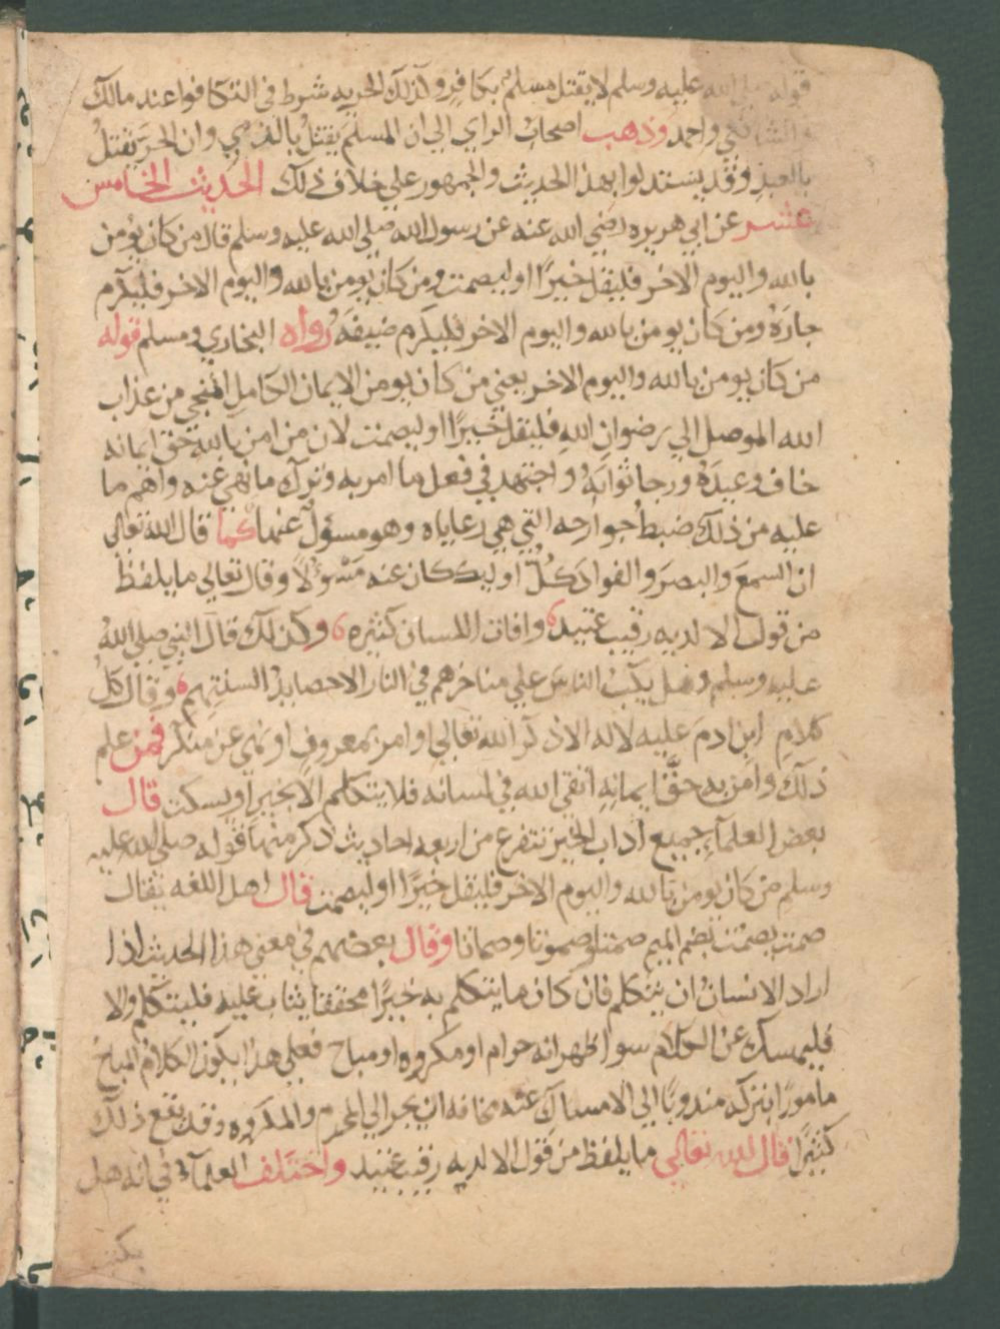 قوله صلى الله عليه وسلم لا يقتل مسلم بكافر وكذلك الحريه شرط في التكافوا عند مالك
والشافعي واحمد وذهب اصحاب الراي الي ان المسلم يقتل بالذمي وان الحر يقتل
بالعبد وقد يستدلوا بهذا الحديث والجمهور علي خلاف ذلك الحديث الخامس
عشر عن ابي هريره رضي الله عنه عن رسول الله صلي الله عليه وسلم قال من كان يومن
بالله واليوم الاخر فليقل خيرًا او ليصمت ومن كان يومن بالله واليوم الاخر فليكرم
جارَهُ ومن كان يومن بالله واليوم الاخر فليكرم ضيفَهُ رواه البخاري ومسلم قوله
من كان يومن بالله واليوم الاخر يعني من كان يومن الايمان الكامل المنجي من عذاب
الله الموصل الي رضوان الله فليقل خيرًا او ليصمت لان من امن بالله حق ايمانه
خاف وعيدَهُ ورجا ثوابَهُ واجتهد في فعل ما امر به وترك ما نهي عنه واهم ما
عليه من ذلك ضبط جوارحه التي هي رعاياه وهو مسؤل عنها كما قال الله تعالي
ان السمعَ والبصرَ والفوادَ كلُّ اوليك كان عنه مسْؤلًا وقال تعالي ما يلفظ
من قول الا لديه رقيب عتيد وافات اللسان كثيره وكذلك قال النبي صلي اللهُ
عليه وسلم وهل يكب الناس علي مناخرهم في النار الا حصايد السنتهم وقال كل
كلام ابن ادم عليه لا له الا ذكر الله تعالي وامر بمعروف او نهي عن منكر فمن علم
ذلك وامن به حقَّ ايمانِهِ اتقي الله في لسانه فلا يتكلم الا بخير او يسكت قال
بعض العلمآء جميع اداب الخير تتفرع من اربعه احاديث ذكر منها قوله صلي الله عليه
وسلم من كان يومن بالله واليوم الاخر فليقل خيرًا او ليصمت قال اهل اللغه يقال
صمت يصمت بضم الميم صمتا وصموتا وصماتا وقال بعضهم في معني هذا الحديث اذا
اراد الانسان ان يتكلم فان كان ما يتكلم به خيرًا محققا يثاب عليه فليتكلم والا
فليمسك عن الكلام سوا ظهر انه حرام او مكروه او مباح فعلي هذا يكون الكلام المباح
مامورًا بتركه مندوبًا الي الامساك عنه مخافه ان يجر الي المحرم والمكروه وقد يقع ذلك
كثيرًا قال الله تعالي ما يلفظ من قول الا لديه رقيب عتيد واختلف العلمآء في انه هل
يكتب